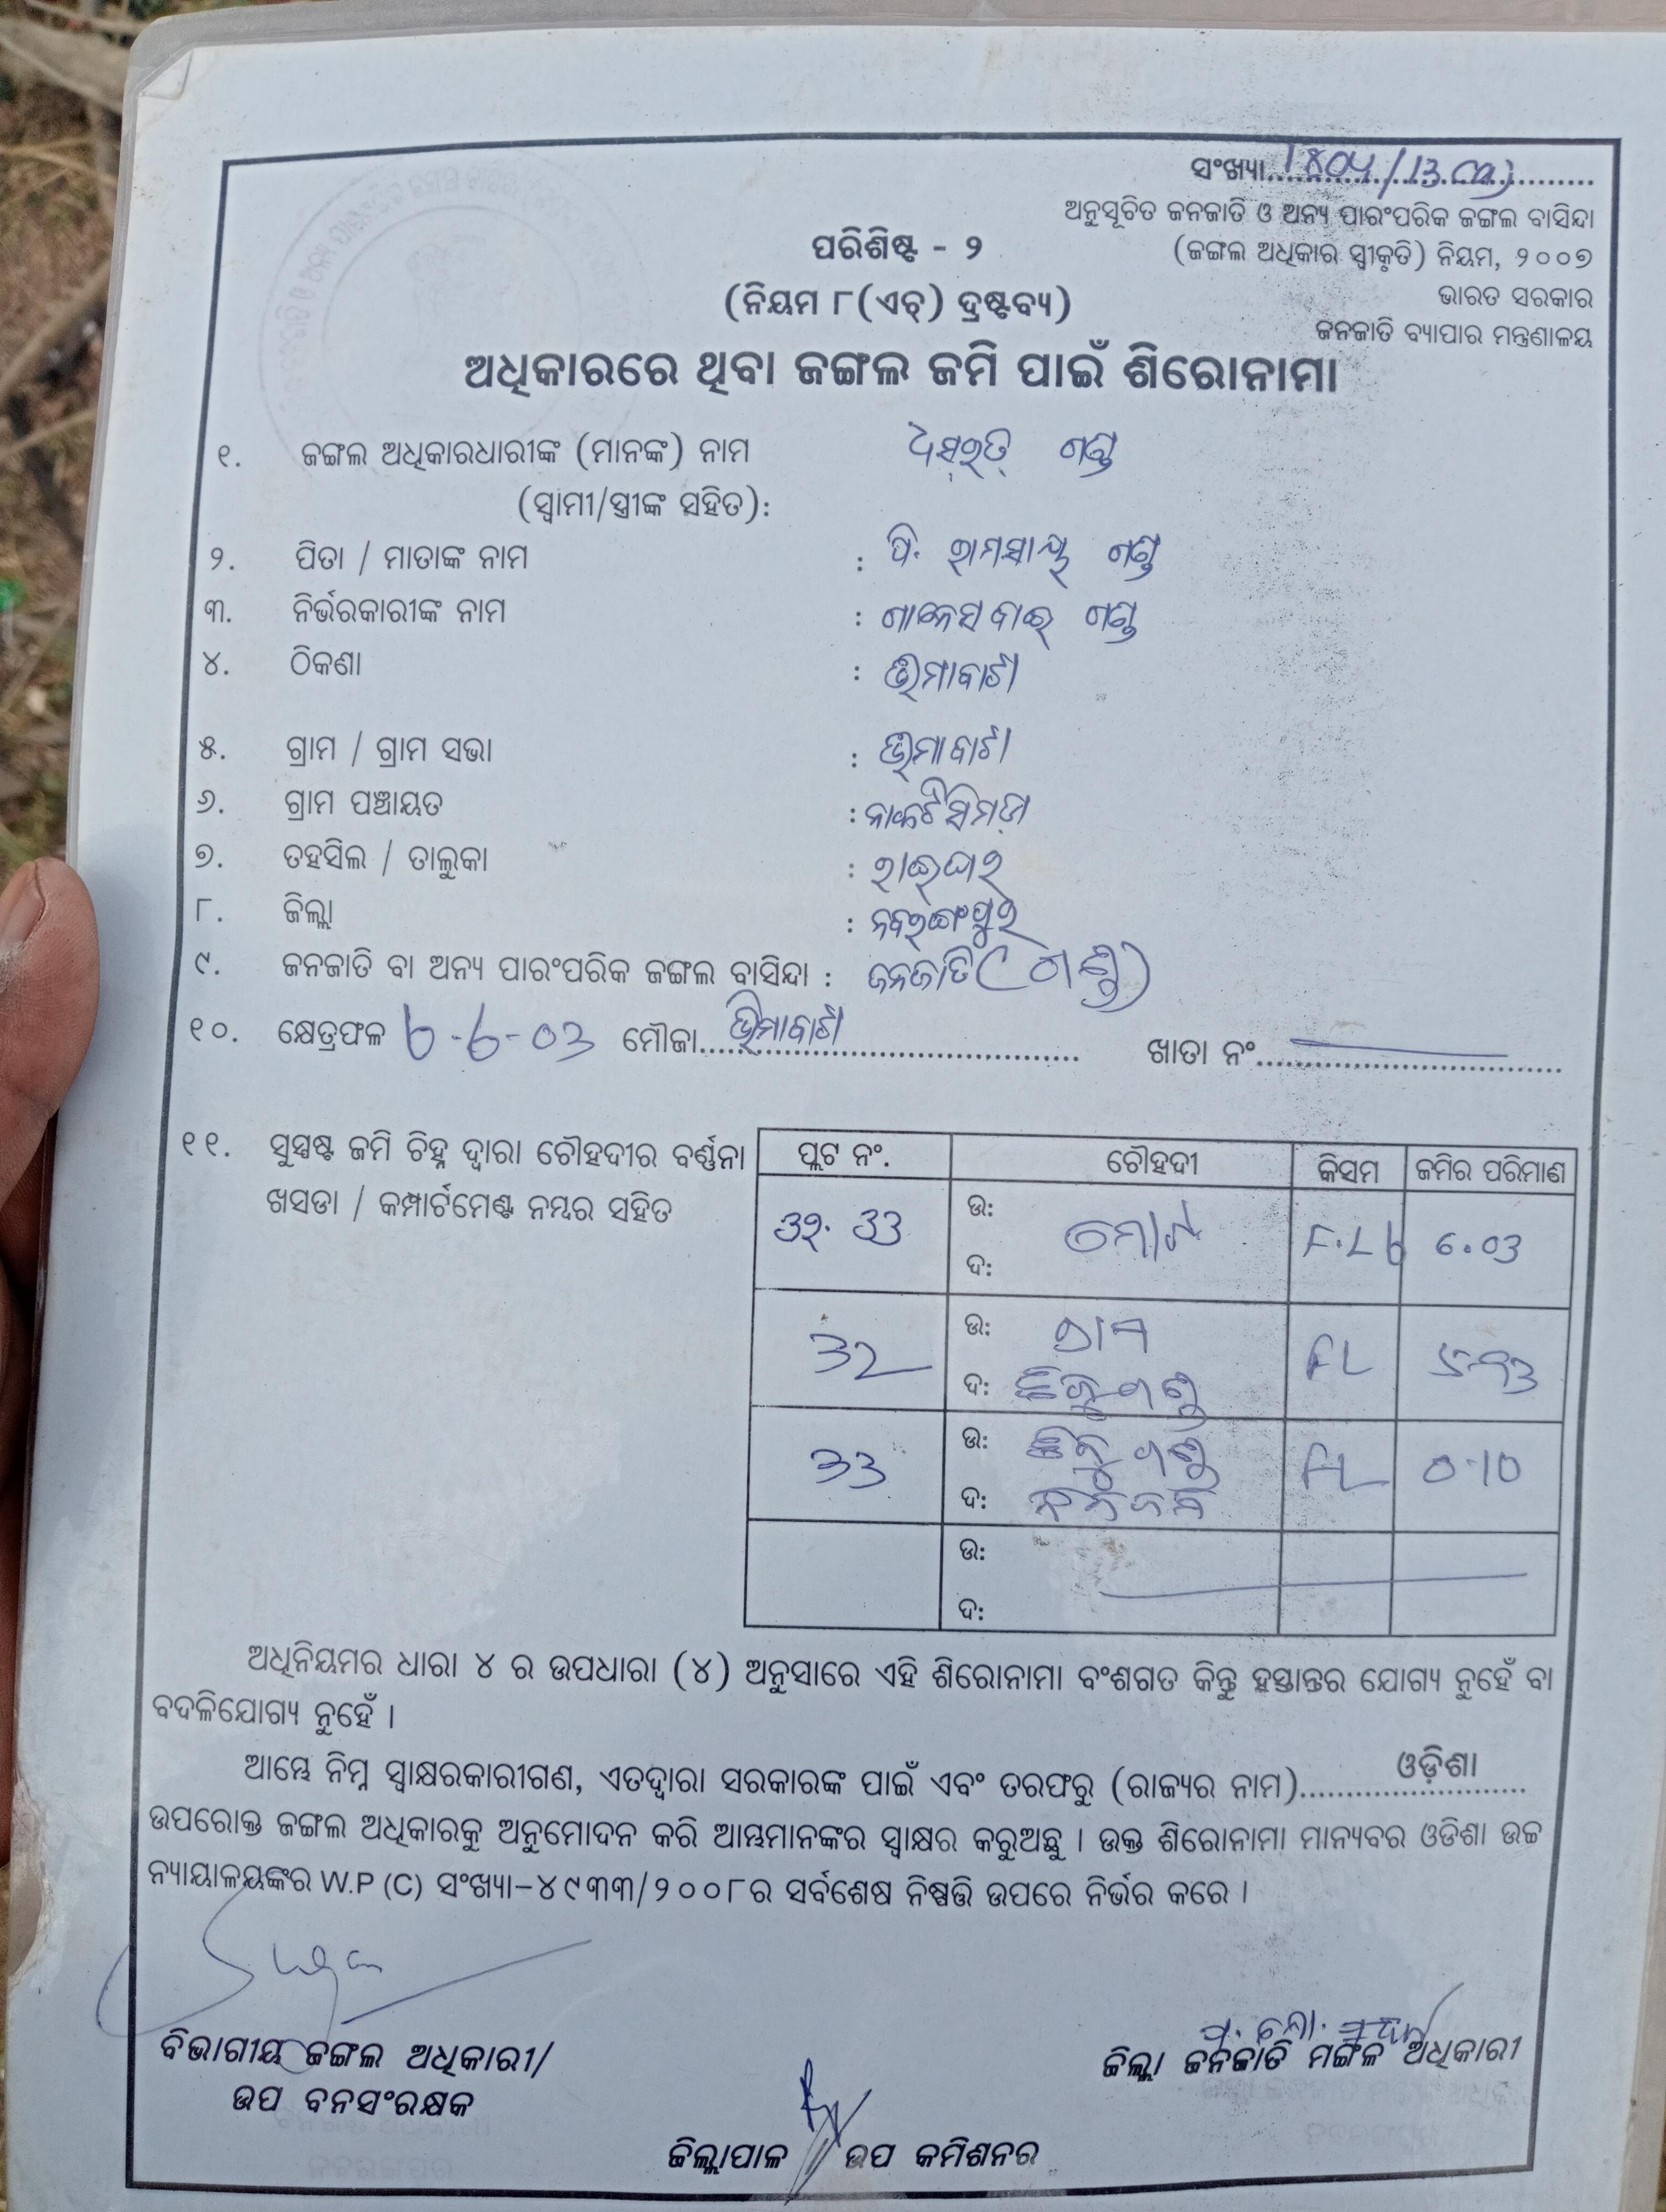 ସଂଖ୍ୟା.......1804/13(a)
ଅନୁସୂଚିତ ଜନଜାତି ଓ ଅନ୍ୟ ପାରଂପରିକ ଜଙ୍ଗଲ ବାସିନ୍ଦା
ପରିଶିଷ୍ଟ - ୨
(ଜଙ୍ଗଲ ଅଧିକାର ସ୍ୱୀକୃତି) ନିୟମ, ୨୦୦୭
(ନିୟମ ୮(ଏଚ୍) ଦ୍ରଷ୍ଟବ୍ୟ)
ଭାରତ ସରକାର
ଜନଜାତି ବ୍ୟାପାର ମନ୍ତ୍ରଣାଳୟ
ଅଧିକାରରେ ଥିବା ଜଙ୍ଗଲ ଜମି ପାଇଁ ଶିରୋନାମା
୧. ଜଙ୍ଗଲ ଅଧିକାରଧାରୀଙ୍କ (ମାନଙ୍କ) ନାମ ଗଣ୍ଡ
(ସ୍ୱାମୀ/ସ୍ତ୍ରୀଙ୍କ ସହିତ):
୨. ପିତା / ମାତାଙ୍କ ନାମ : ପି. ରାମସାୟ ଗଣ୍ଡ
୩. ନିର୍ଭରକାରୀଙ୍କ ନାମ : ଗଣ୍ଡ
୪. ଠିକଣା : ଭିମାବାଟୀ
୫. ଗ୍ରାମ / ଗ୍ରାମ ସଭା : ଭିମାବାଟୀ
୬. ଗ୍ରାମ ପଞ୍ଚାୟତ : ନାକଟିସିମଡ଼ା
୭. ତହସିଲ / ତାଲୁକା : ରାଇଘର
୮. ଜିଲ୍ଲା : ନବରଙ୍ଗପୁର
୯. ଜନଜାତି ବା ଅନ୍ୟ ପାରଂପରିକ ଜଙ୍ଗଲ ବାସିନ୍ଦା : ଜନଜାତି (ଗଣ୍ଡ)
୧୦. କ୍ଷେତ୍ରଫଳ 6-03 ମୌଜା....ଭିମାବାଟୀ.... ଖାତା ନଂ........
୧୧. ସୁସ୍ପଷ୍ଟ ଜମି ଚିହ୍ନ ଦ୍ୱାରା ଚୌହଦୀର ବର୍ଣ୍ଣନା
ଖସଡା / କମ୍ପାର୍ଟମେଣ୍ଟ ନମ୍ବର ସହିତ
ପ୍ଲଟ ନଂ. ଚୌହଦୀ କିସମ ଜମିର ପରିମାଣ
ଉ:
33 6.03
ଦ:
ଉ:
32 FL
ଦ: ଗଣ୍ଡ
ଉ: ଗଣ୍ଡ
33 FL 0.10
ଦ:
ଉ:
ଦ:
ଅଧିନିୟମର ଧାରା ୪ ର ଉପଧାରା (୪) ଅନୁସାରେ ଏହି ଶିରୋନାମା ବଂଶଗତ କିନ୍ତୁ ହସ୍ତାନ୍ତର ଯୋଗ୍ୟ ନୁହେଁ ବା
ବଦଳିଯୋଗ୍ୟ ନୁହେଁ ।
ଆମ୍ଭେ ନିମ୍ନ ସ୍ୱାକ୍ଷରକାରୀଗଣ, ଏତଦ୍ୱାରା ସରକାରଙ୍କ ପାଇଁ ଏବଂ ତରଫରୁ (ରାଜ୍ୟର ନାମ)........ଓଡ଼ିଶା........
ଉପରୋକ୍ତ ଜଙ୍ଗଲ ଅଧିକାରକୁ ଅନୁମୋଦନ କରି ଆମ୍ଭମାନଙ୍କର ସ୍ୱାକ୍ଷର କରୁଅଛୁ । ଉକ୍ତ ଶିରୋନାମା ମାନ୍ୟବର ଓଡିଶା ଉଚ୍ଚ
ନ୍ୟାୟାଳୟଙ୍କର W.P (C) ସଂଖ୍ୟା-୪୯୩୩/୨୦୦୮ର ସର୍ବଶେଷ ନିଷ୍ପତ୍ତି ଉପରେ ନିର୍ଭର କରେ ।
ବିଭାଗୀୟ ଜଙ୍ଗଲ ଅଧିକାରୀ/
ଉପ ବନସଂରକ୍ଷକ
ଜିଲ୍ଲା ଜନଜାତି ମଙ୍ଗଳ ଅଧିକାରୀ
ଜିଲ୍ଲାପାଳ / ଉପ କମିଶନର